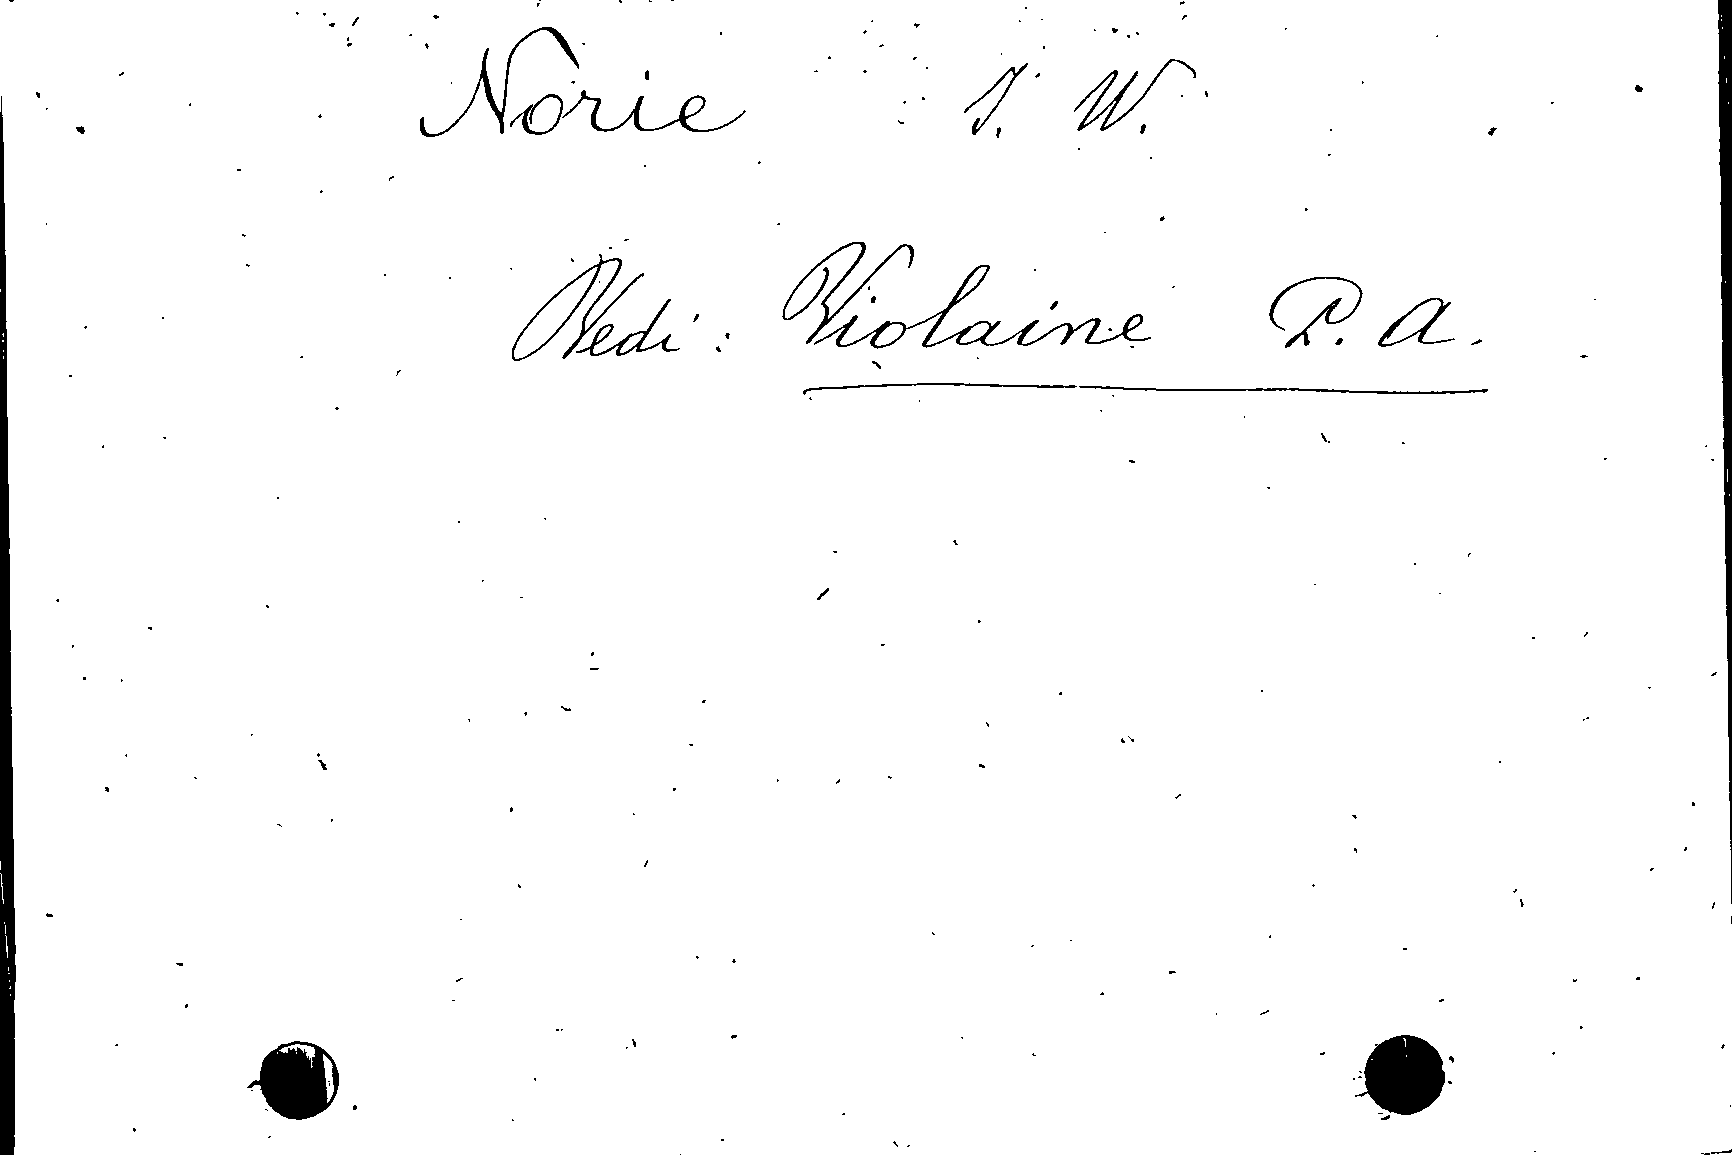 Norie J. W.
Vedi: Violaine P. A.